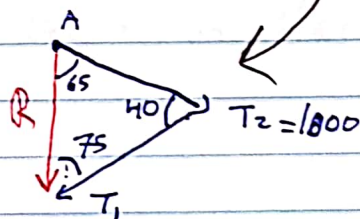 A
65
R
40
T2 = 1000
75
T1